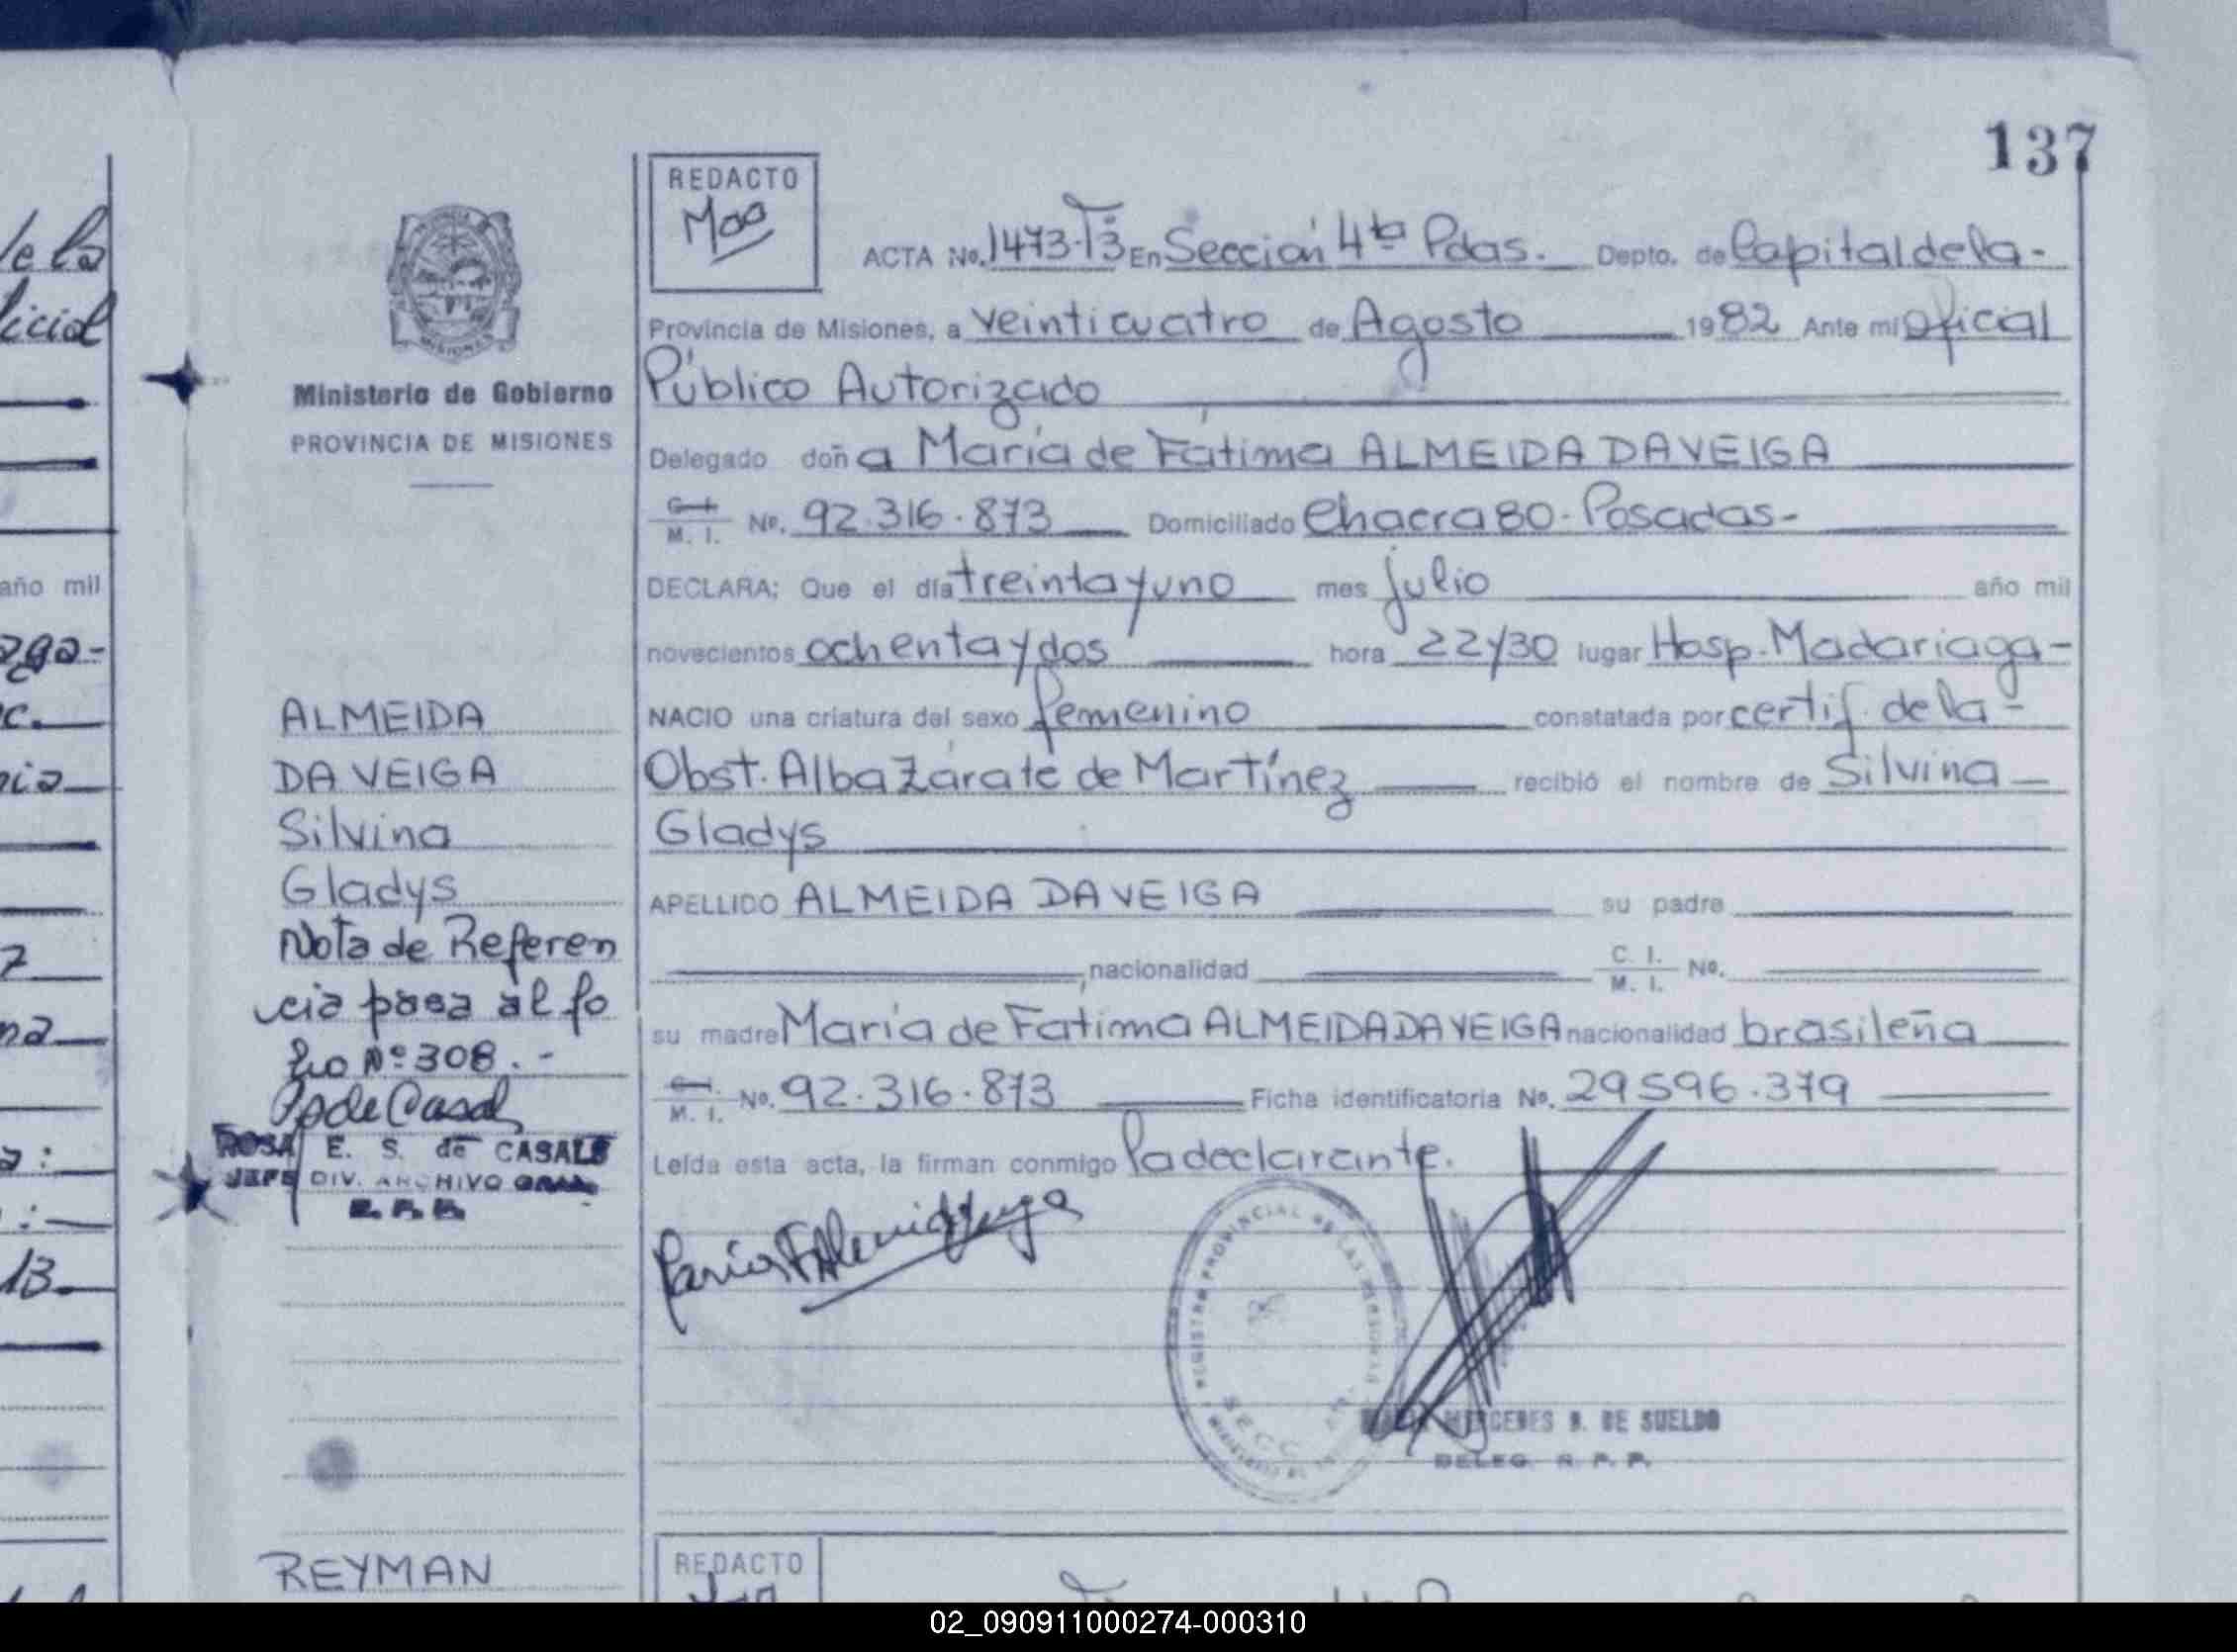 137
REDACTO
ACTA No. 1473-T3 En Sección 4ta Pdas. Depto. de Capital de la-
Provincia de Misiones, a veinticuatro de Agosto 1982 Ante mi Oficial
Público Autorizado
Delegado doña María de Fátima ALMEIDA DA VEIGA
M. I. No. 92.316.873 Domiciliado Chacra 80-Posadas-
DECLARA: Que el día treinta y uno mes julio año mil
novecientos ochenta y dos hora 22y30 lugar Hosp. Madariaga-
NACIO una criatura del sexo femenino constatada por certif. de la-
Obst. Alba Zárate de Martínez recibió el nombre de Silvina
Gladys
APELLIDO ALMEIDA DA VEIGA su padre
, nacionalidad C. I. M. I. No.
su madre María de Fátima ALMEIDA DA VEIGA nacionalidad brasileña
M. I. No. 92.316.873 Ficha identificatoria No. 29596.379
Leída esta acta, la firman conmigo la declarante.
REGISTRO PROVINCIAL DE LAS PERSONAS
SECC
MERCEDES B. DE SUELDO
DELEG. R. P. P.
MISIONES
Ministerio de Gobierno
PROVINCIA DE MISIONES
ALMEIDA
DA VEIGA
Silvina
Gladys
Nota de Referen
cia pasa al fo
lio Nº 308.-
ROSA E. S. de CASALS
JEFE DIV. ARCHIVO GRAL.
R. P. P.
REYMAN
REDACTO
de la
año mil
7
13
02_090911000274-000310